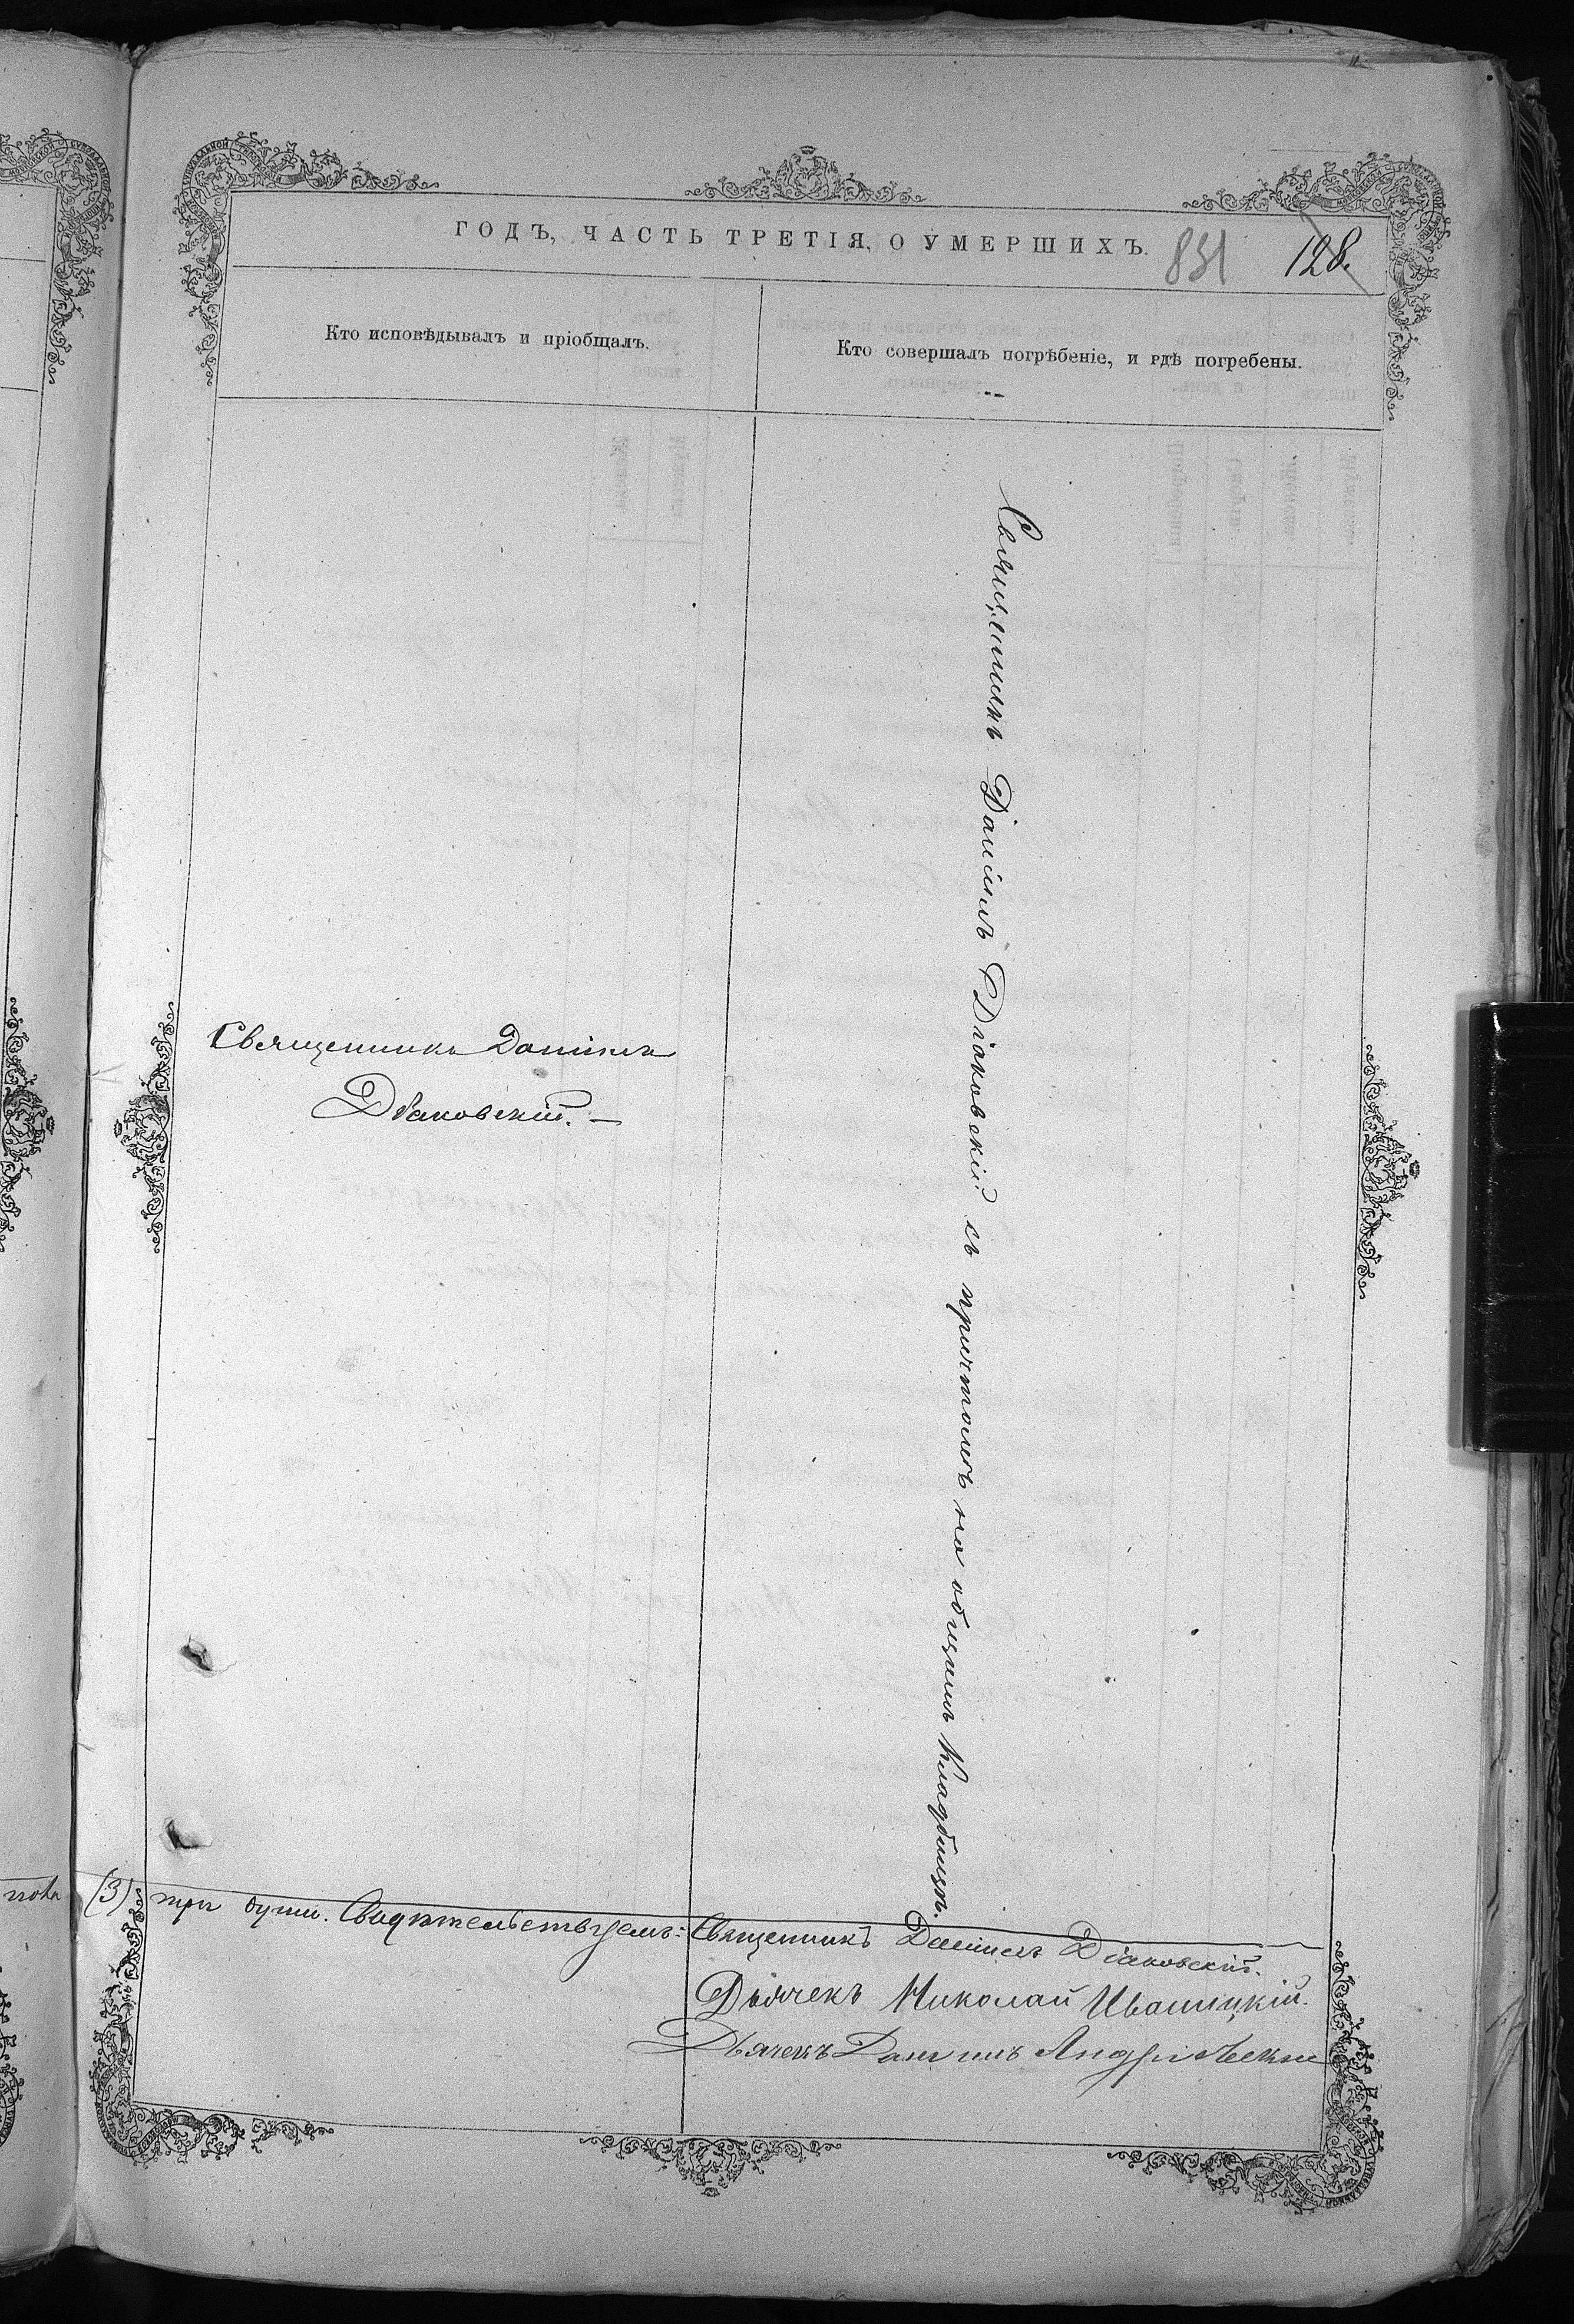 ГОДЪ, ЧАСТЬ ТРЕТІЯ, О УМЕРШИХЪ.
831
128.
Кто исповѣдывалъ и пріобщалъ.
Кто совершалъ погрѣбеніе, и гдѣ погребены.
Священникъ Даніилъ
Діаковскій. —
Священникъ Даніилъ Діаковскій съ причтомъ на общемъ кладбищѣ.
(3) три души. Свидѣтельствуемъ:
Священникъ Даніилъ Діаковскій.
Дьячекъ Николай Ивашицкій.
Дьячекъ Даніилъ